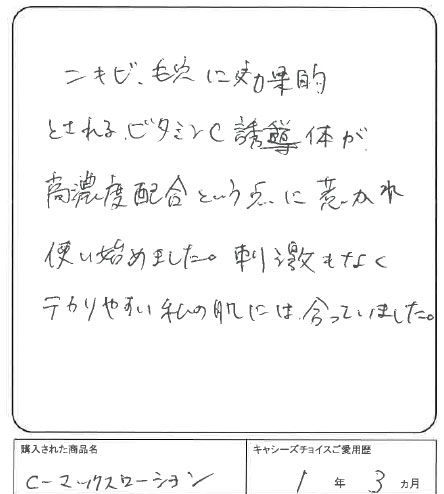 ニキビ、毛穴に効果的
とされる、ビタミンC誘導体が
高濃度配合という点に惹かれ
使い始めました。刺激もなく
テカりやすい私の肌には、合っていました。
購入された商品名
キャシーズチョイスご愛用歴
C-マックスローション
1年 3ヵ月